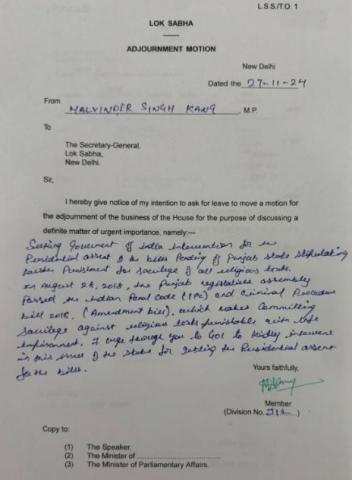 L.S.S./T.O. 1
LOK SABHA
ADJOURNMENT MOTION
New Delhi
Dated the 27-11-24
From
MALVINDER SINGH KANG, M.P.
To
The Secretary-General,
Lok Sabha,
New Delhi.
Sir,
I hereby give notice of my intention to ask for leave to move a motion for
the adjournment of the business of the House for the purpose of discussing a
definite matter of urgent importance, namely:—
Seeking Government of India intervention for
Presidential assent of the bills Pending of Punjab state stipulating
Punishment for sacrilege of all religious texts.
on August 28, 2018, the Punjab legislative assembly
Passed the Indian Penal Code (IPC) and Criminal Procedure
bill 2018, (Amendment bill), which makes Committing
Sacrilege against religious texts punishable with life
imprisonment. I urge through you to GOI to kindly intervene
in this issue of the state for getting the Presidential assent
for the bills.
Yours faithfully,
Member
(Division No.        )
Copy to:
(1) The Speaker.
(2) The Minister of
(3) The Minister of Parliamentary Affairs.